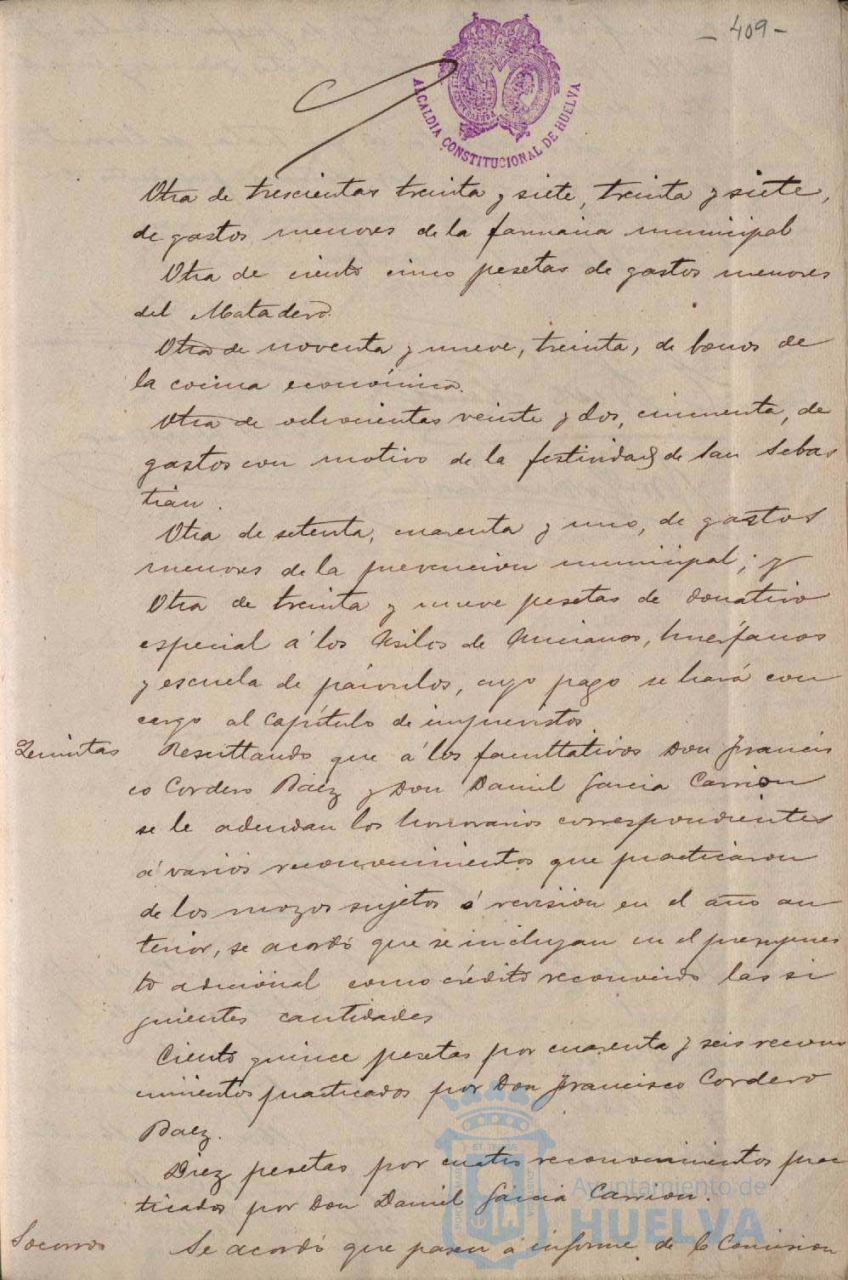 - 409 -
ALCALDIA CONSTITUCIONAL DE HUELVA
Otra de trescientas treinta y siete, treinta y siete,
de gastos menores de la farmacia municipal
Otra de ciento cinco pesetas de gastos menores
del Matadero.
Otra de noventa y nueve, treinta, de bonos de
la cocina económica.
Otra de ochocientas veinte y dos, cincuenta, de
gastos con motivo de la festividad de San Sebas
tián.
Otra de setenta, cuarenta y uno, de gastos
menores de la prevencion municipal; y
Otra de treinta y nueve pesetas de donativo
especial á los Asilos de Ancianos, huérfanos
y escuela de párvulos, cuyo pago se hará con
cargo al Capítulo de imprevistos.
Quintas Resultando que á los facultativos Don Francis
co Cordero Báez y Don Daniel Garcia Carrion
se le adeudan los honorarios correspondientes
á varios reconocimientos que practicaron
de los mozos sujetos á revision en el año an
terior, se acordó que se incluyan en el presupues
to adicional como crédito reconocido las si
guientes cantidades
Ciento quince pesetas por cuarenta y seis recono
cimientos practicados por Don Francisco Cordero
Baez.
Diez pesetas por cuatro reconocimientos prac
ticados por Don Daniel Garcia Carrion.
Socorros Se acordó que pasen á informe de la Comision
Ayuntamiento de
HUELVA